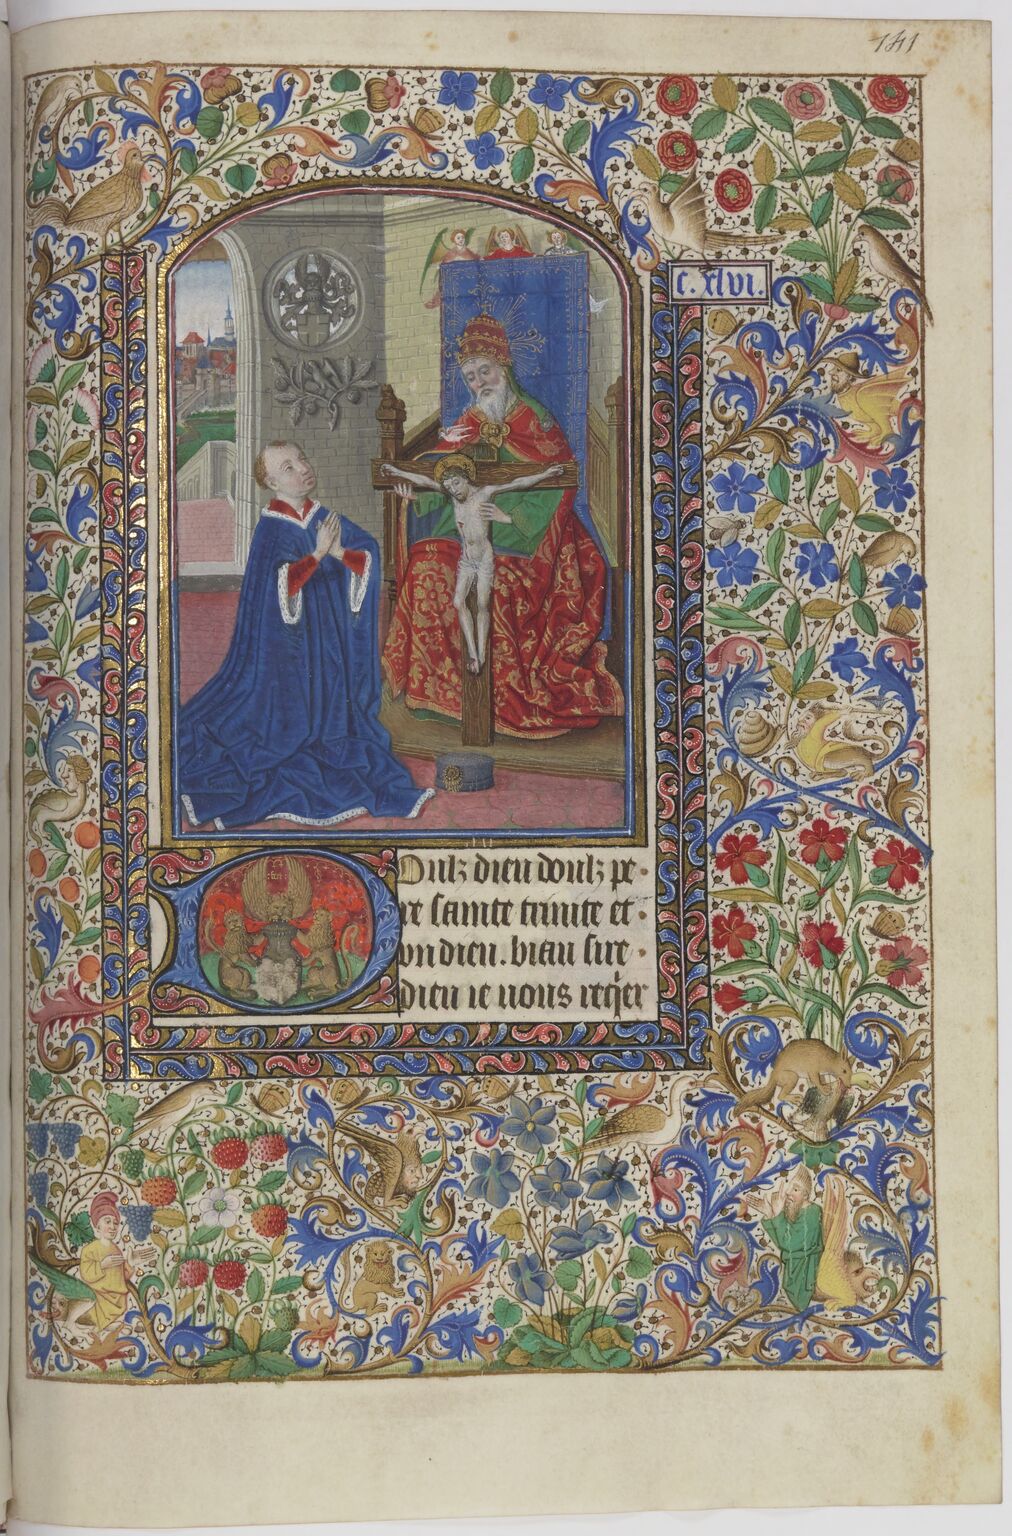 141
C. xlvi.
Doulz dieu doulz pe
re sainte trinite et
vn dieu. biau sire
dieu ie uous reqier